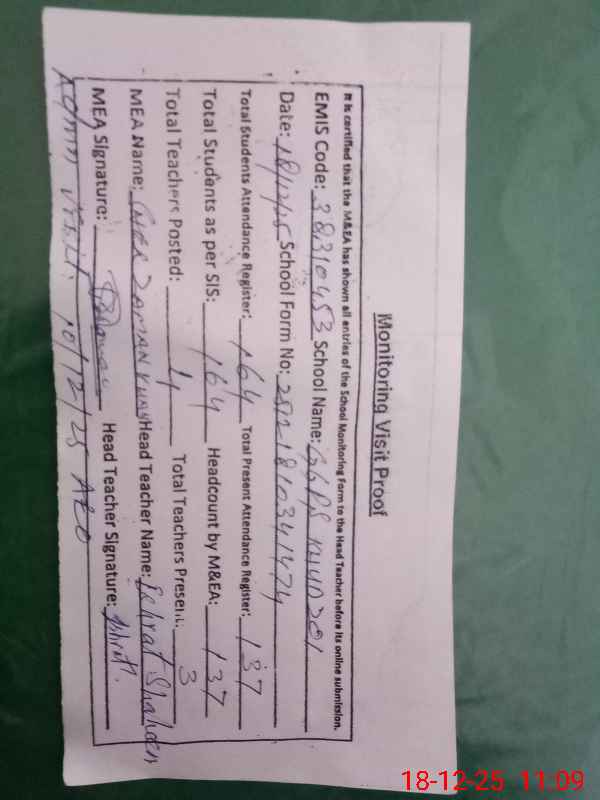 Monitoring Visit Proof
It is certified that the M&EA has shown all entries of the School Monitoring Form to the Head Teacher before its online submission.
EMIS Code: 38310453 School Name: GGPS
Date: 18/12/25 School Form No:
Total Students Attendance Register: 164 Total Present Attendance Register: 137
Total Students as per SIS: 164 Headcount by M&EA: 137
Total Teachers Posted: 4 Total Teachers Present: 3
MEA Name: Head Teacher Name: Ishrat Shaheen
MEA Signature: Head Teacher Signature: Ishrat
Admn Visit: 10/12/25 AEO
18-12-25 11:09